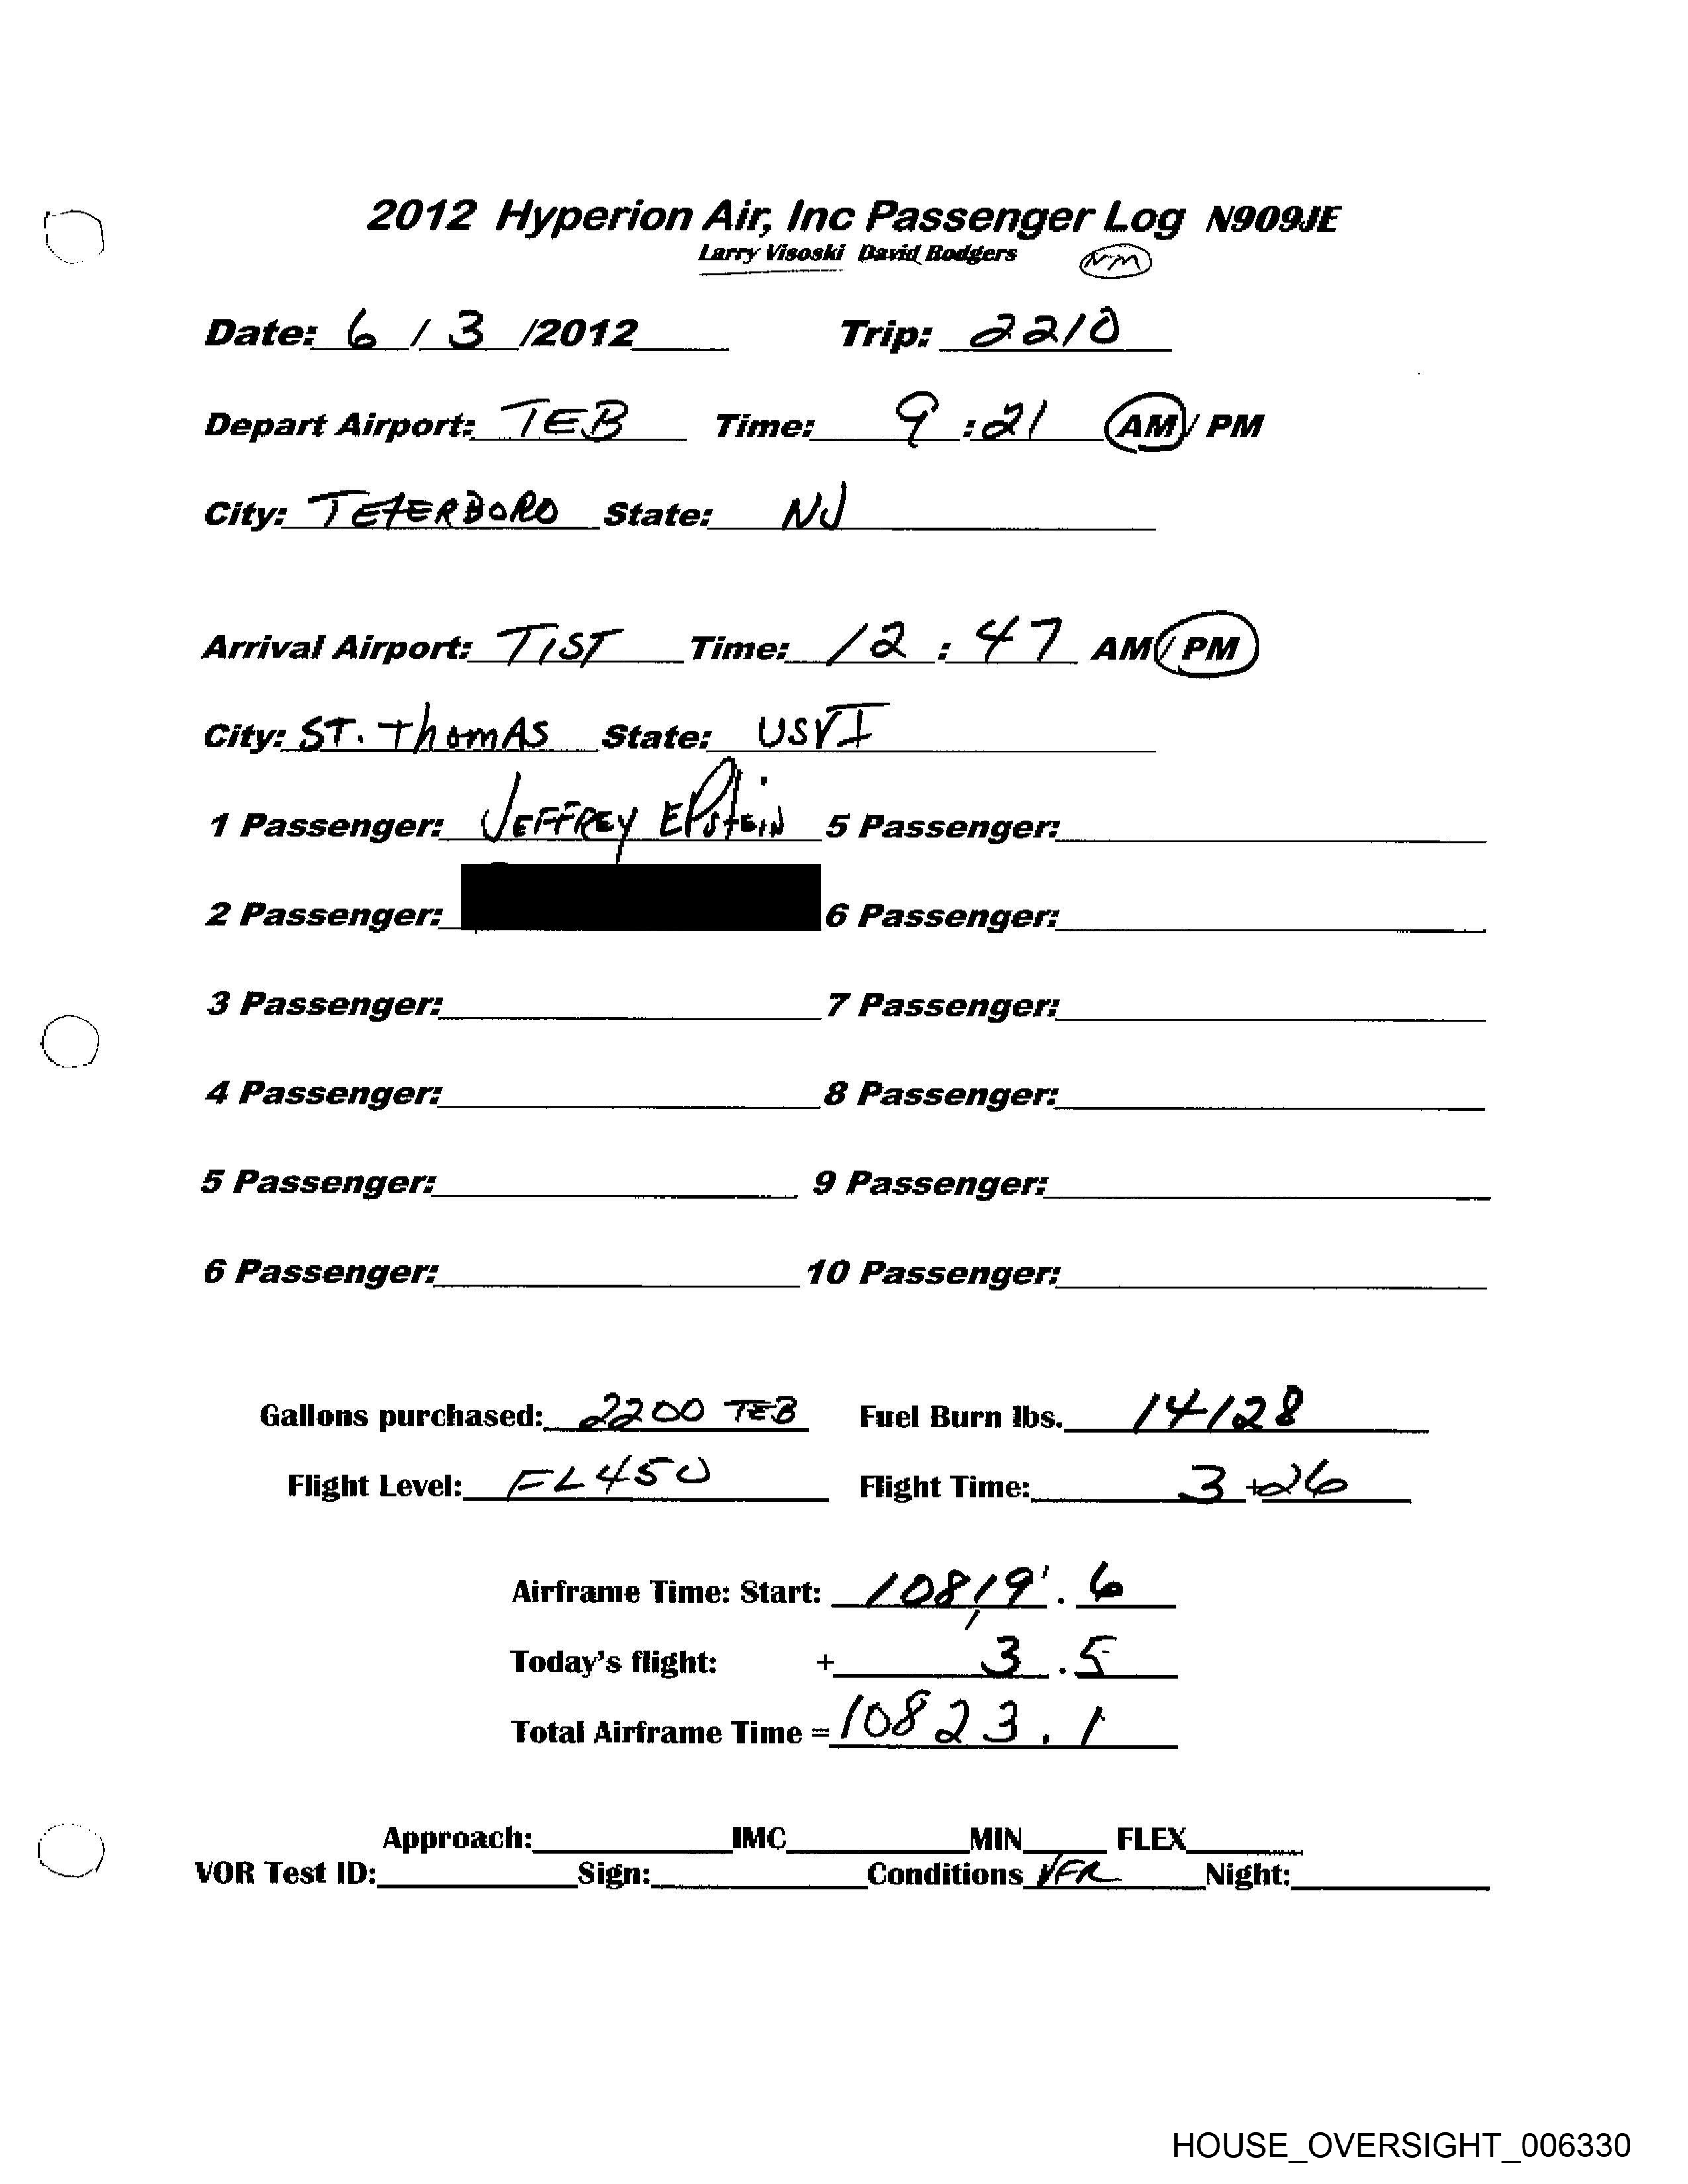 2012 Hyperion Air, Inc Passenger Log N909JE
Larry Visoski David Rodgers NM
Date: 6 / 3 /2012 Trip: 2210
Depart Airport: TEB Time: 9 : 21 AM / PM
City: TETERBORO State: NJ
Arrival Airport: TIST Time: 12 : 47 AM / PM
City: ST. ThomAS State: USVI
1 Passenger: JEFFREY EPstEiN 5 Passenger:
2 Passenger: 6 Passenger:
3 Passenger: 7 Passenger:
4 Passenger: 8 Passenger:
5 Passenger: 9 Passenger:
6 Passenger: 10 Passenger:
Gallons purchased: 2200 TEB Fuel Burn lbs. 14128
Flight Level: FL450 Flight Time: 3+26
Airframe Time: Start: 10819 . 6
Today's flight: + 3 . 5
Total Airframe Time = 10823 . 1
Approach: IMC MIN FLEX
VOR Test ID: Sign: Conditions VFR Night:
HOUSE_OVERSIGHT_006330